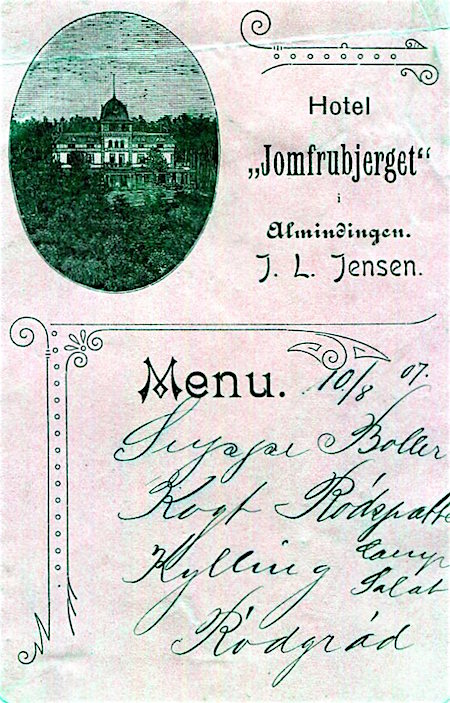 Hotel
„Jomfrubjerget“
i
Almindingen.
J. L. Jensen.
Menu. 10/8 07.
Suppe Boller
Kogt Rödspætte
Kylling
Salat
Rödgröd